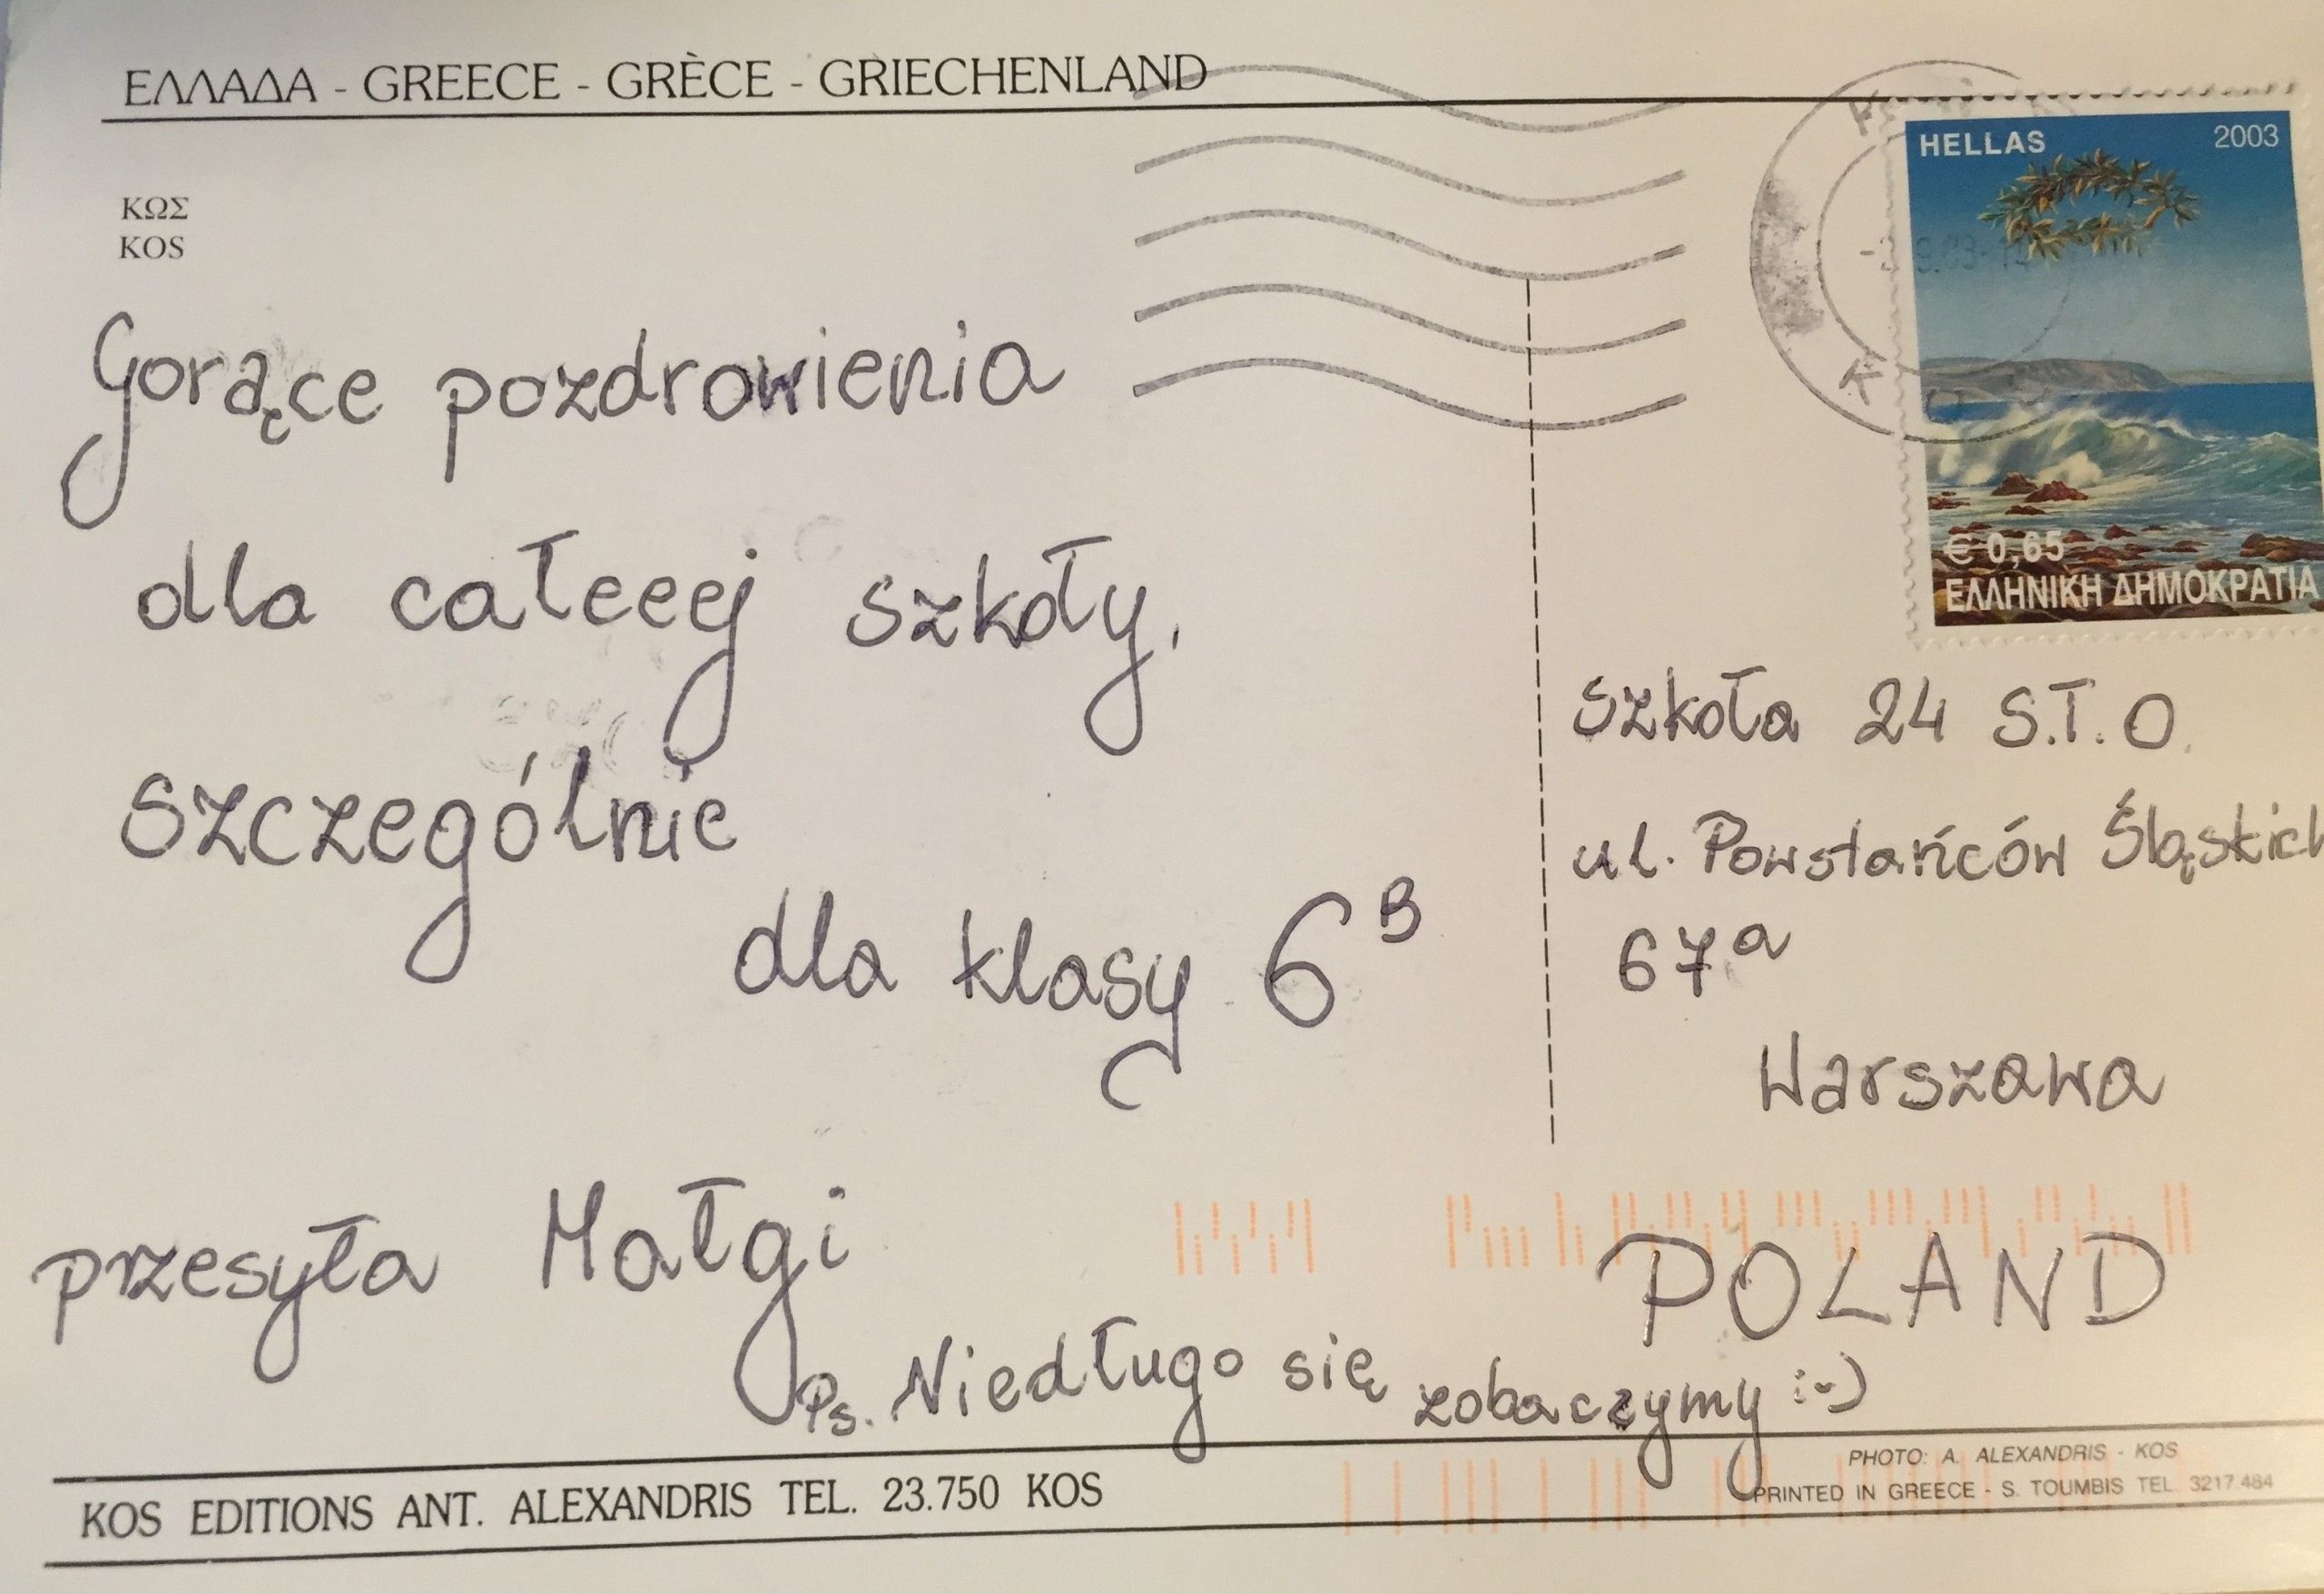 ΕΛΛΑΔΑ - GREECE - GRÈCE - GRIECHENLAND
ΚΩΣ
KOS
Gorące pozdrowienia
dla całeeej szkoły,
szczególnie
dla klasy 6B
przesyła Małgi
Ps. Niedługo się zobaczymy :-)
HELLAS 2003
€ 0,65
ΕΛΛΗΝΙΚΗ ΔΗΜΟΚΡΑΤΙΑ
Szkoła 24 S.T.O.
ul. Powstańców Śląskich
67a
Warszawa
POLAND
KOS EDITIONS ANT. ALEXANDRIS TEL. 23.750 KOS
PHOTO: A. ALEXANDRIS - KOS
PRINTED IN GREECE - S. TOUMBIS TEL. 3217 484